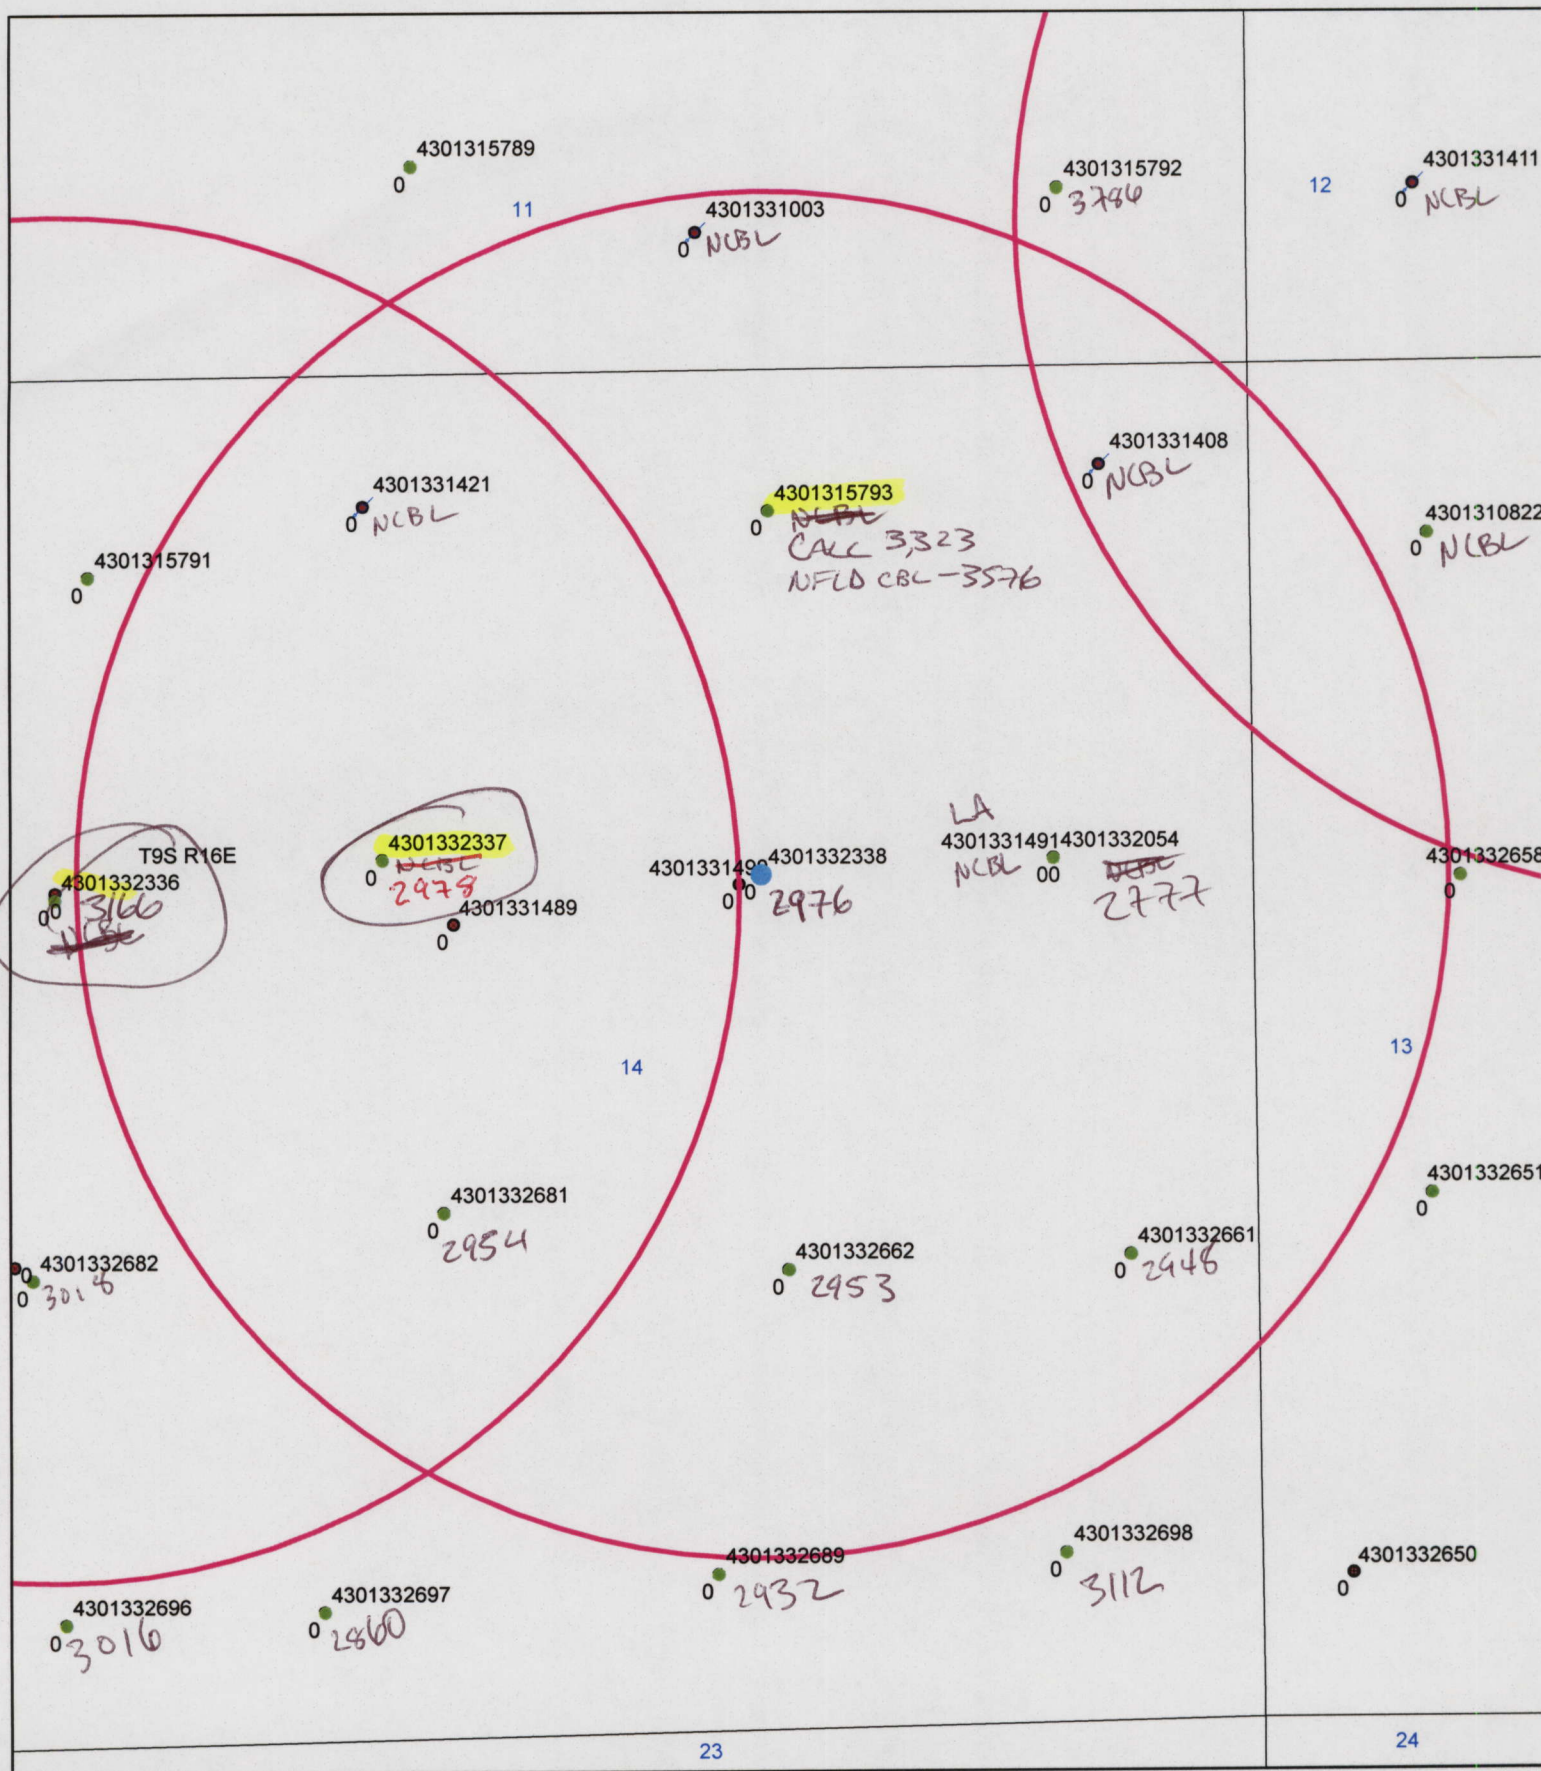 4301315789
0
11
4301315792
0 3786
12
4301331411
0 NCBL
4301331003
0 NCBL
4301331408
0 NCBL
4301331421
0 NCBL
4301315793
0 NCBL
CALC 3,323
NFLD CBL-3576
4301310822
0 NCBL
4301315791
0
T9S R16E
4301332336
00 3166
NCBL
4301332337
0 NCBL
2978
4301331489
0
4301332338
0 0 2976
LA
4301331491 4301332054
NCBL 00 NCBL
2777
4301332658
0
14
13
4301332681
0
2954
4301332651
0
4301332682
0
0 3018
4301332662
0 2953
4301332661
0 2948
4301332689
0 2932
4301332698
0 3112
4301332650
0
4301332696
0 3016
4301332697
0 2860
23
24